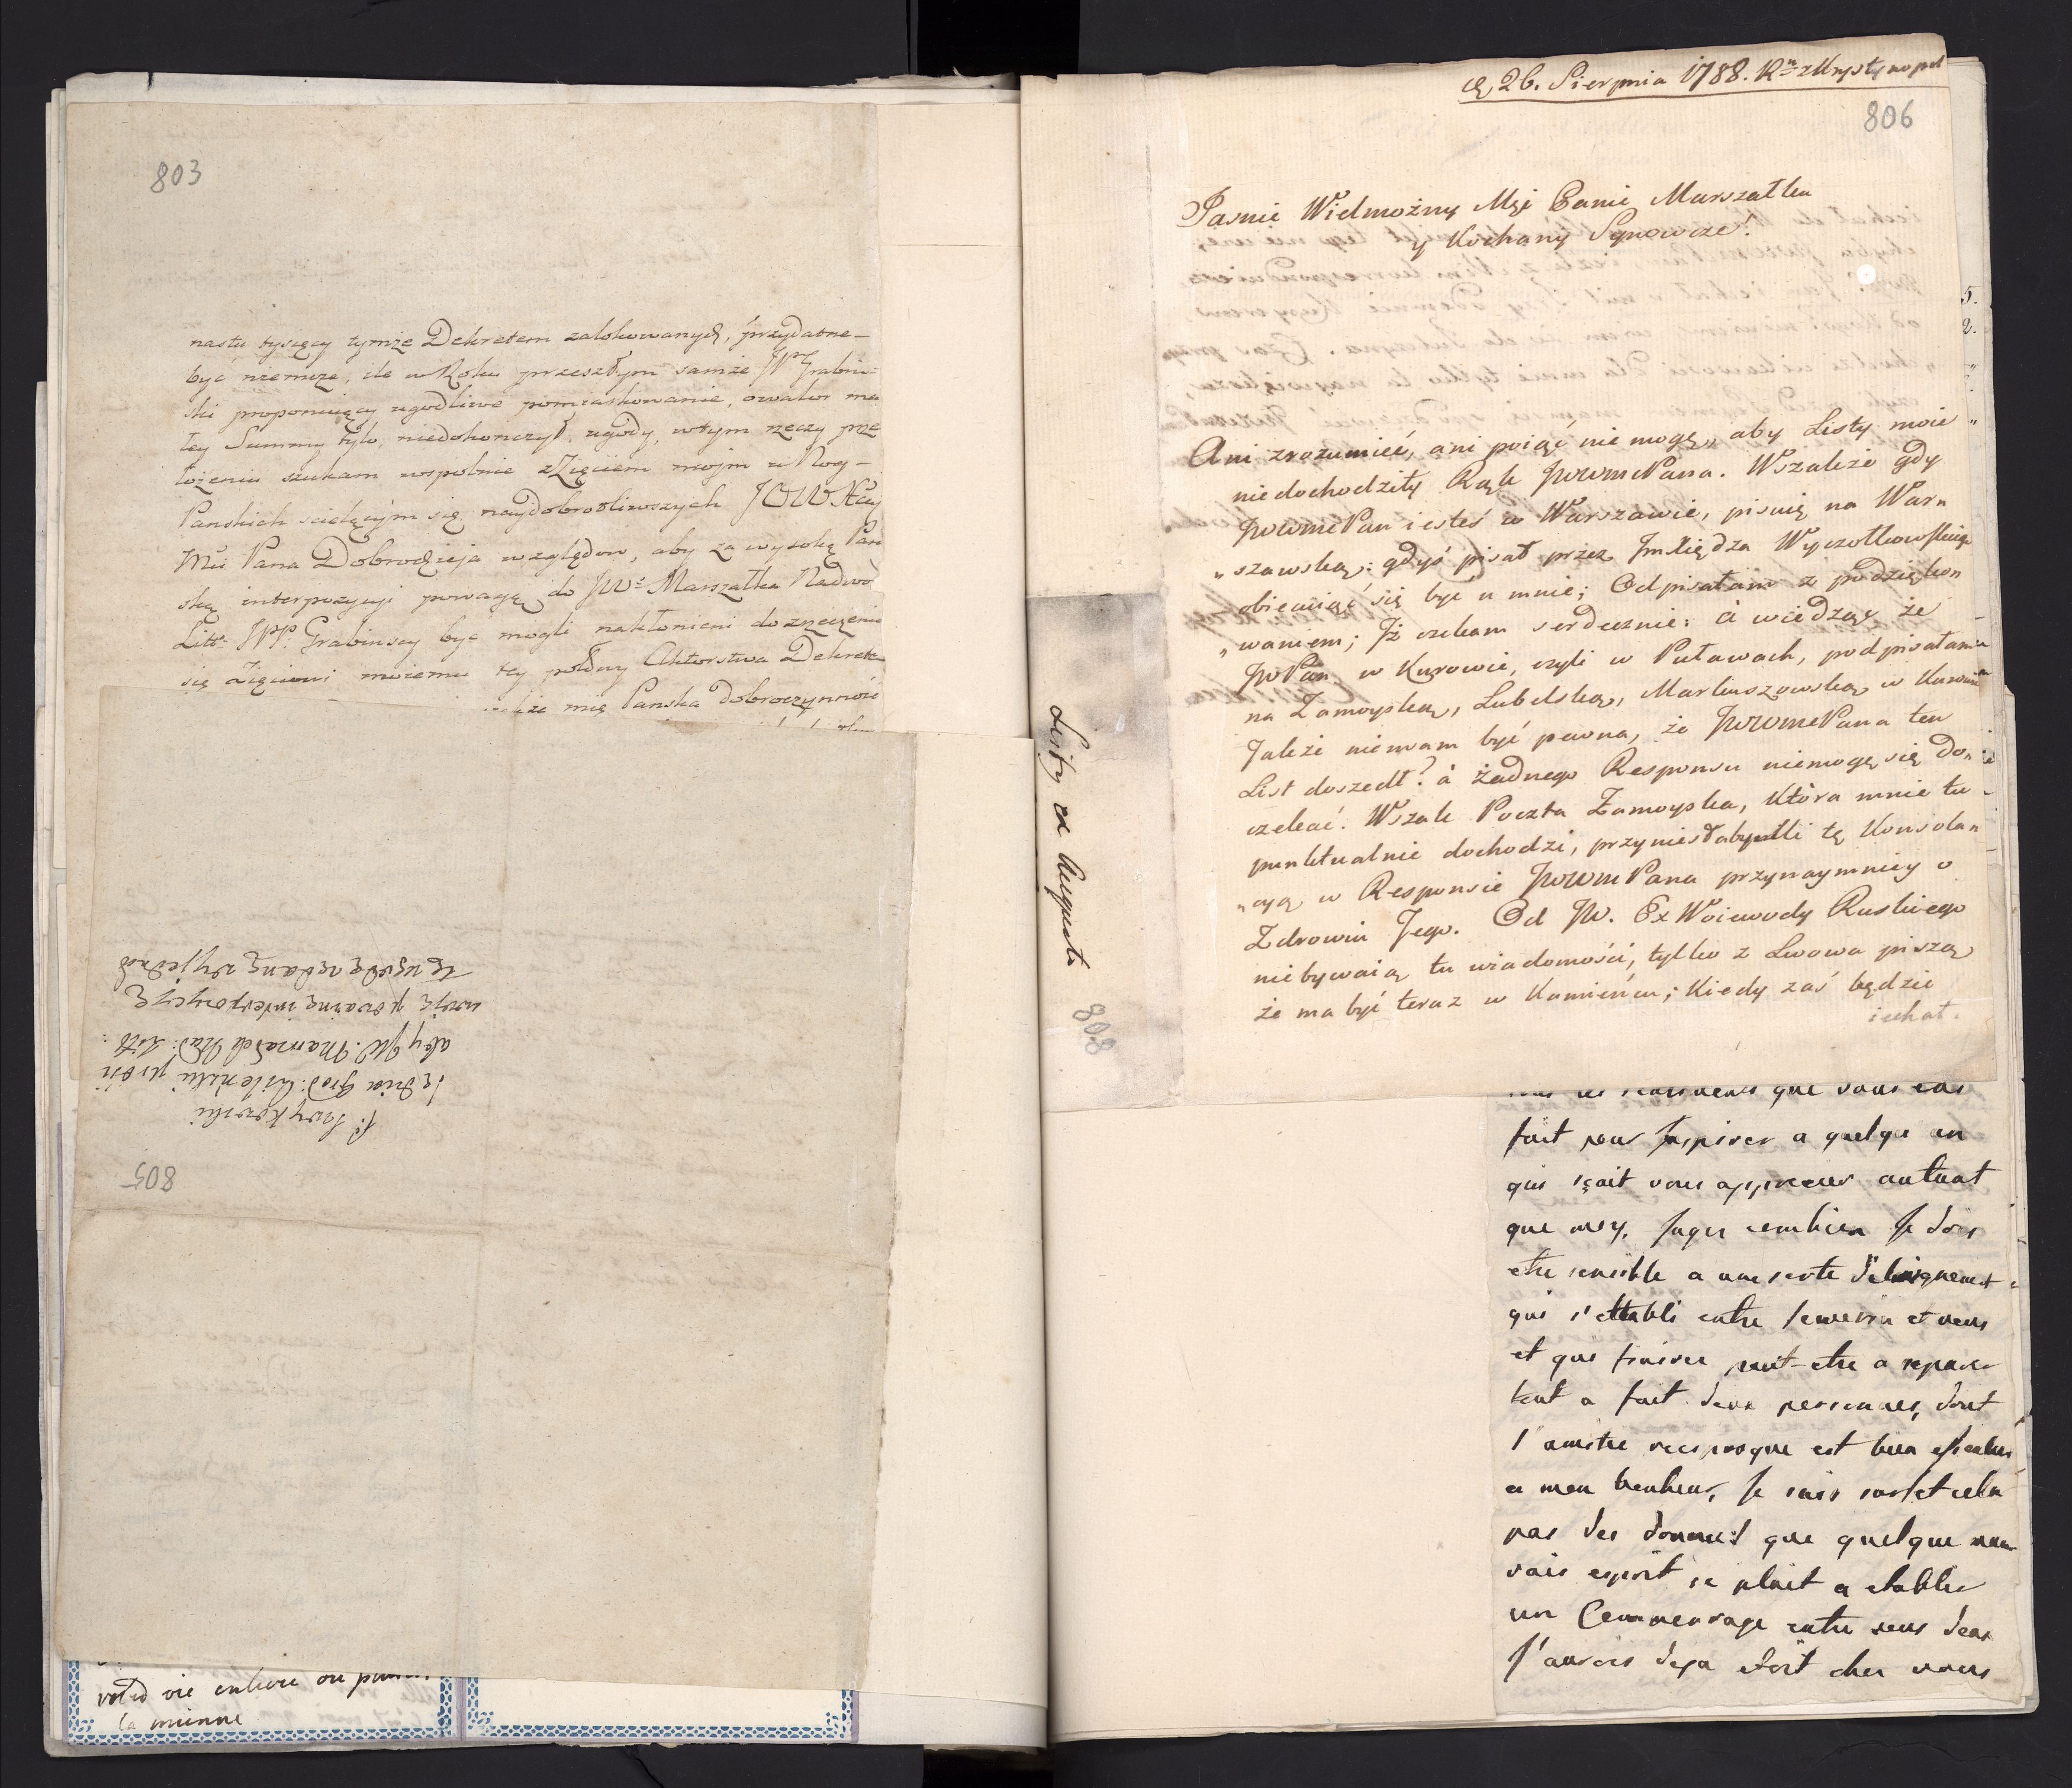 803
nastu tysięcy tymże Dekretem zalokowanych, przydatne
być niemoże, ile w Roku przeszłym samże JP Grabiń-
ski proponuiący ugodliwe pomiarkowanie, o walor
tey Summy tylo, niedokończył ugody, w tym rzeczy
łożeniu szukam wspolnie z Zięciem moim u Nog
Panskich scielącym się naydobrotliwszych JOWXcey
Mci Pana Dobrodzieja względow, aby za wysoką Pan
ską interpozycyi powagą do JWo Marszałka Nadwo
Litt JPP. Grabinscy być mogli nakłonieni do zrzeczenia
się Zięciowi moiemu tey połowy Aktorstwa Dekret
mię Panska dobroczynność
805
P.
Sędzia Grod: prosi
aby JW. Marszałek Nad: Litt:
swoją poważną interpozycyę
tę
votre vie entiere ou
la mienne
Listy ex Augusto
808
d. 26. Sierpnia 1788. Rn z Krystynopol
806
Jasnie Wielmożny Mci Panie Marszałku
y Kochany Synowcze!
Ani zrozumieć, ani poiąć nie mogę, aby Listy moie
niedochodziły Rąk JWWmcPana. Wszakże gdy
JWWmcPan iesteś w Warszawie, piszię na War„
„szawską; gdyś pisał przez JmXiędza Wyczołkowskiego
obiecuiąc się być u mnie; Odpisałam z podzięko„
„waniem; Iż czekam serdecznie: à wiedząc że
JWPan w Kurowie, czyli w Puławach, podpisałam
na Zamoyską, Lubelską, Markuszowską w Kurowie
Jakże niemam być pewna, że JWWmcPana ten
List doszedł? à żadnego Responsu niemogę się do„
czekać. Wszak Poczta Zamoyska, która mnie tu
punktualnie dochodzi, przyniesłaby tę Konsola„
„cyą w Responsie JWWmPana przynaymniey o
Zdrowiu Jego. Od JW. Ex Woiewody Ruskiego
niebywaią tu wiadomości, tylko z Lwowa piszą
że ma być teraz w Kamieńcu; Kiedy zaś będzie
iechał.
que vous etes
fait pour Inspirer a quelqu un
qui sçait vous apprecier autant
que moy, Juger combien Je dois
etre sensible a une sorte d'eloignement
qui s'ettabli entre Severin et vous
et qui finiroi peut-etre a separer
tout a fait deux personnes, dont
l'amitie reciproque est bien essentiel
a mon bonheur, Je suis
pas des données que quelque mau
vais esprit se plait a etablir
un Commerage entre vous deux
J'aurois deja ecrit chez vous